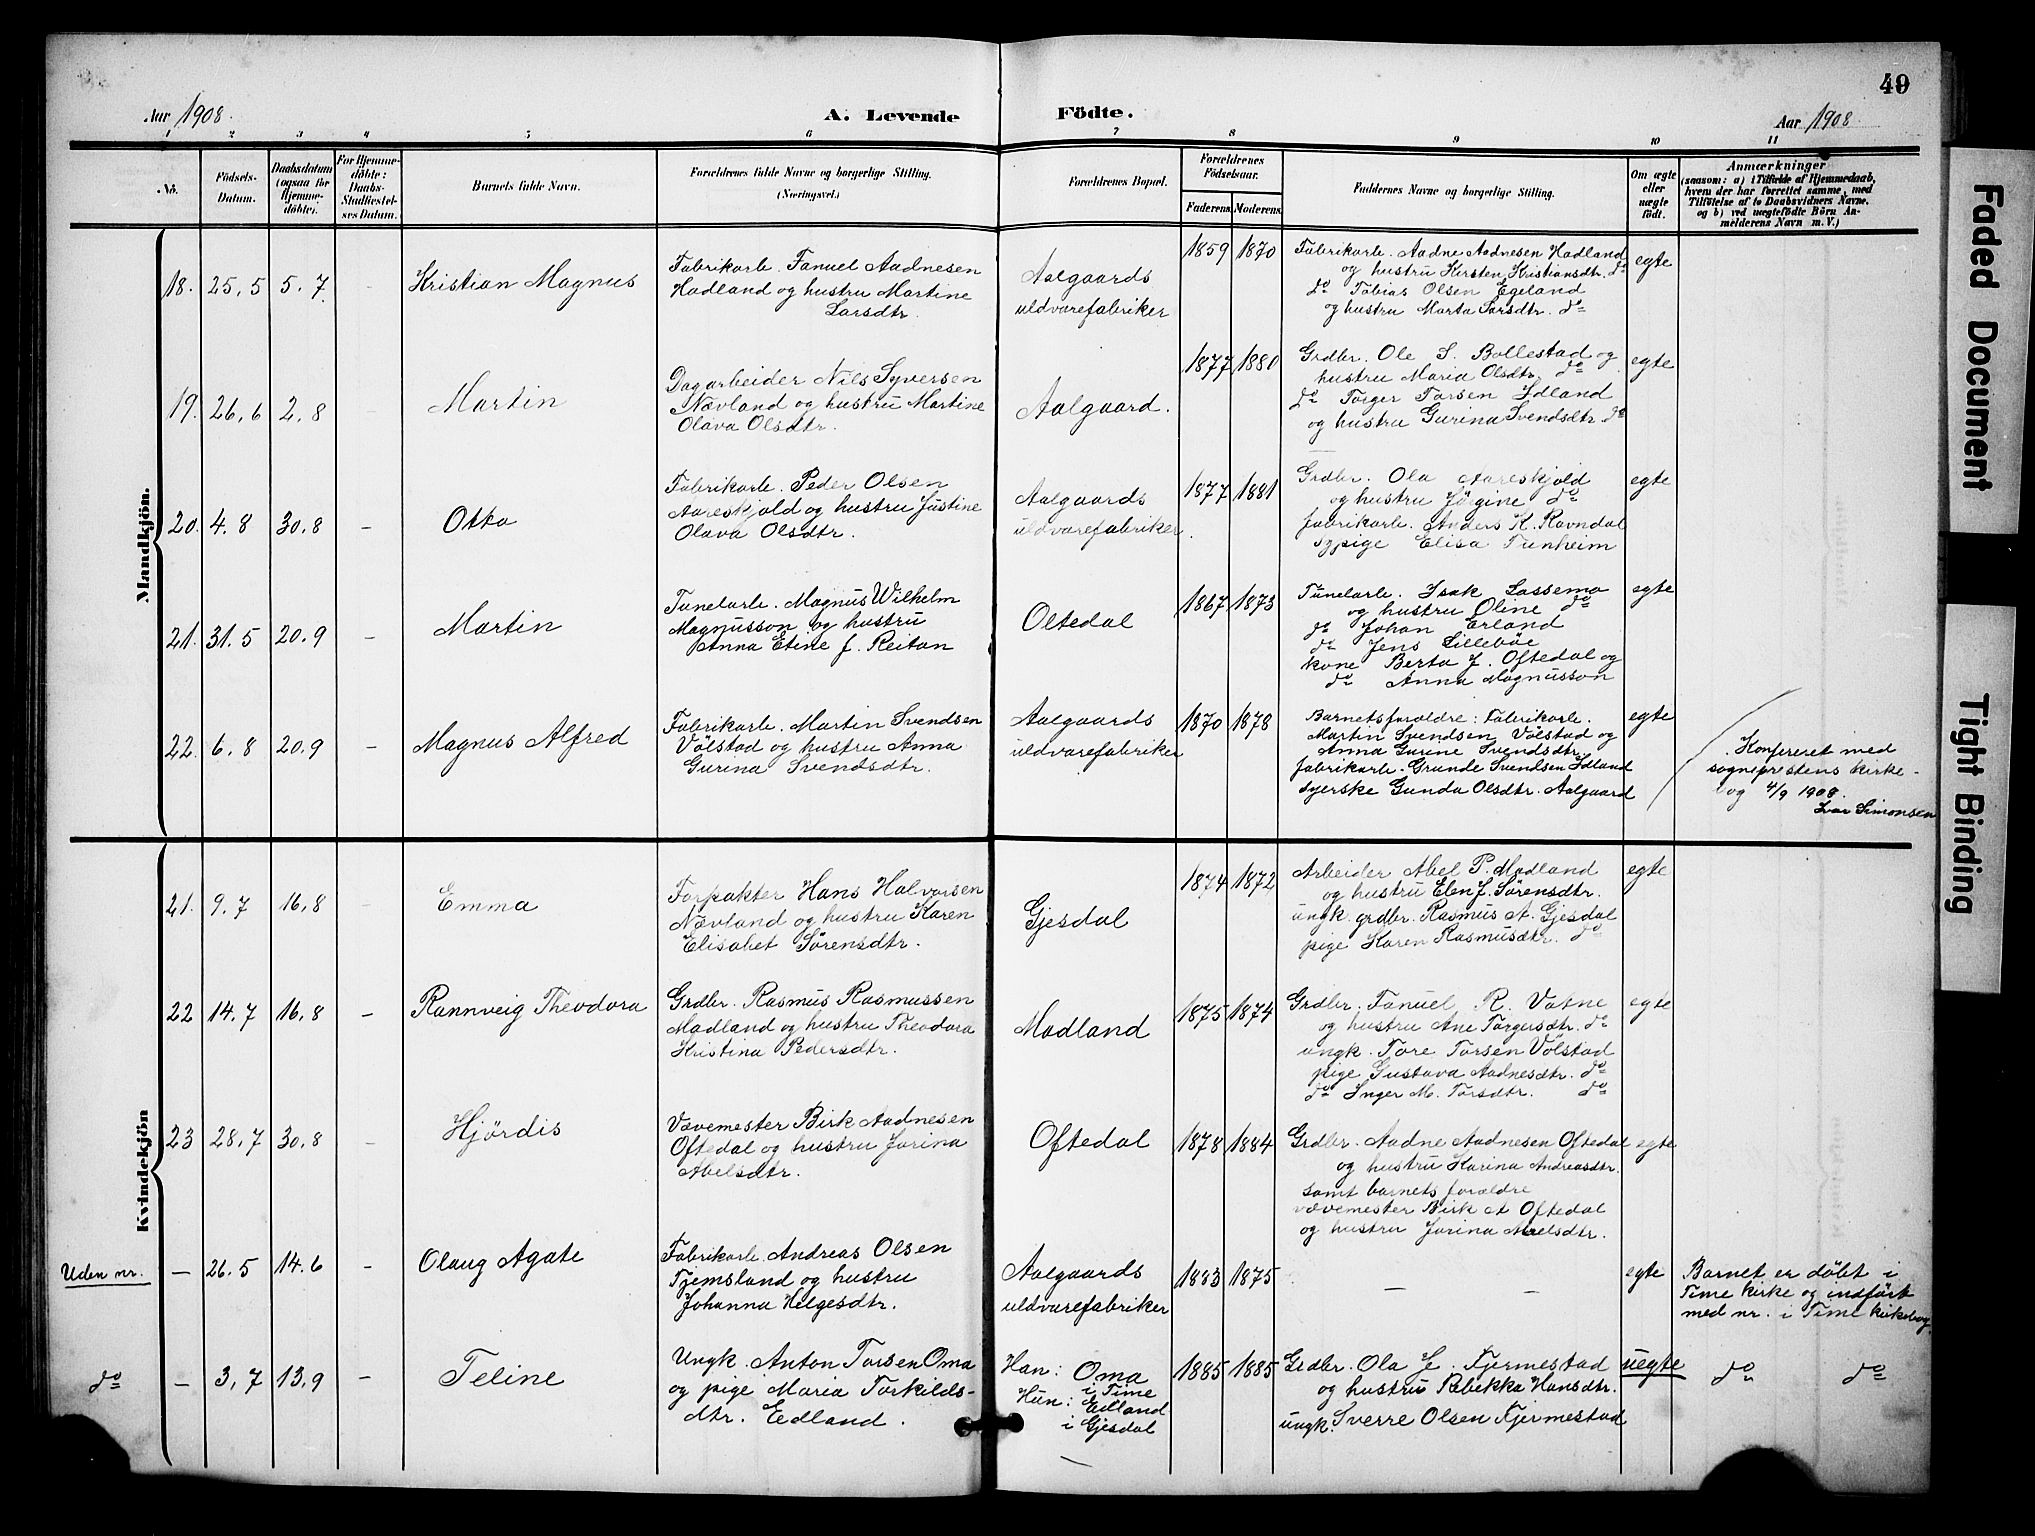 49
Aar 1908.
A. Levende
Födte.
Aar 1908
1 2 3 4 5 6 7 8 9 10 11
No.
Födsels-
Datum.
Daabsdatum
(ogsaa for
Hjemme-
döbte).
For Hjemme-
döbte:
Daabs-
Stadfæstel-
ses Datum.
Barnets fulde Navn.
Forældrenes fulde Navne og borgerlige Stilling.
(Næringsvei.)
Forældrenes Bopæl.
Forældrenes
Födselsaar.
Faderens.
Moderens.
Faddernes Navne og borgerlige Stilling.
Om ægte
eller
uægte
födt.
Anmærkninger
(saasom: a) i Tilfælde af Hjemmedaab,
hvem der har forrettet samme, med
Tilföielse af to Daabsvidners Navne.
og b) ved uægtefödte Börn An-
melderens Navn m. V.)
Mandkjön.
18. 25,5 5.7. - Kristian Magnus
Fabrikarb. Fanuel Aadnesen
Madland og hustru Martine
Larsdtr.
Aalgaards
uldvarefabriker
1859 1870
Fabrikarb. Aadne Aadnesen Madland
og hustru Kirsten Kristiansdtr. do
do Tobias Olsen Egeland
og hustru Marta Larsdtr. do
egte
19. 26,6 2,8 Martin
Dagarbeider Nils Syversen
Nævland og hustru Martine
Olava Olsdtr.
Aalgaard.
1877 1880
Grdbr. Ole S. Bollestad og
hustru Maria Olsdtr. do
do Torger Torsen Idland
og hustru Gurina Svendsdtr. do
egte
20. 4.8 30.8 - Otto
Fabrikarb. Peder Olsen
Aareskjold og hustru Justine
Olava Olsdtr.
Aalgaards
uldvarefabriker.
1877 1881
Grdbr. Ola Aareskjold
og hustru Jörgine do
fabrikarb. Anders K. Ravndal
sypige Elisa Tunheim
egte
21. 31.5 20.9 - Martin
Tunelarb. Magnus Wilhelm
Magnusson og hustru
Anna Etine f. Reitan
Oltedal
1867 1873
Tunelarb. Isak Lassemo
og hustru Oline do
do Johan Erland
do Jens Lilleböe
kone Berta J. Oftedal og
do Anna Magnusson
egte
22. 6.8 20.9 - Magnus Alfred
Fabrikarb. Martin Svendsen
Völstad og hustru Anna
Gurina Svendsdtr.
Aalgaards
uldvarefabriker
1870 1878
Barnets forældre: Fabrikarb.
Martin Svendsen Völstad og
Anna Gurine Svendsdtr.
fabrikarb. Grunde Svendsen Idland
syerske Gunda Olsdtr. Aalgaard
egte
Konfereret med
sogneprestens kirke-
bog 4/9 1908.
Ivar Simonsen
Kvindekjön
21. 9.7 16,8 - Emma
Forpakter Hans Halvorsen
Nævland og hustru Karen
Elisabet Sörensdtr.
Gjesdal
1874 1872
Arbeider Abel P. Madland
og hustru Elen J. Sörensdtr.
ungk. grdbr. Rasmus A. Gjesdal
pige Karen Rasmusdtr. do
egte
22 14.7 16.8 - Rannveig Theodora
Grdbr. Rasmus Rasmussen
Madland og hustru Theodora
Kristina Pedersdtr.
Madland
1875 1874
Grdbr. Fanuel R. Vatne
og hustru Ane Torgersdtr. do
ungk. Tore Torsen Völstad
pige Gustava Aadnesdtr. do
do Inger M. Torsdtr. do
egte
23 28,7 30.8 - Hjördis
Vævemester Birk Aadnesen
Oftedal og hustru Jorina
Abelsdtr.
Oftedal
1878 1884
Grdbr. Aadne Aadnesen Oftedal
og hustru Karina Andreasdtr.
samt barnets forældre
vævemester Birk A Oftedal
og hustru Jorina Abelsdtr.
egte
Uden nr. - 26.5 14.6 - Olaug Agate
Fabrikarb. Andreas Olsen
Tjemsland og hustru
Johanna Helgesdtr.
Aalgaards
uldvarefabriker
1883 1875
- -
egte
Barnet er döbt i
Time kirke og indfört
med nr. i Time kirkebog
do - 3,7 13,9 - Teline
Ungk. Anton Torsen Oma
og pige Maria Torkilds-
dtr. Eedland.
Han: Oma
i Time
Hun: Eedland
i Gjesdal
1885 1885
Grdbr. Ola E. Fjermestad
og hustru Rebekka Hansdtr.
ungk. Sverre Olsen Fjermestad
uegte
do do
Faded Document
Tight Binding